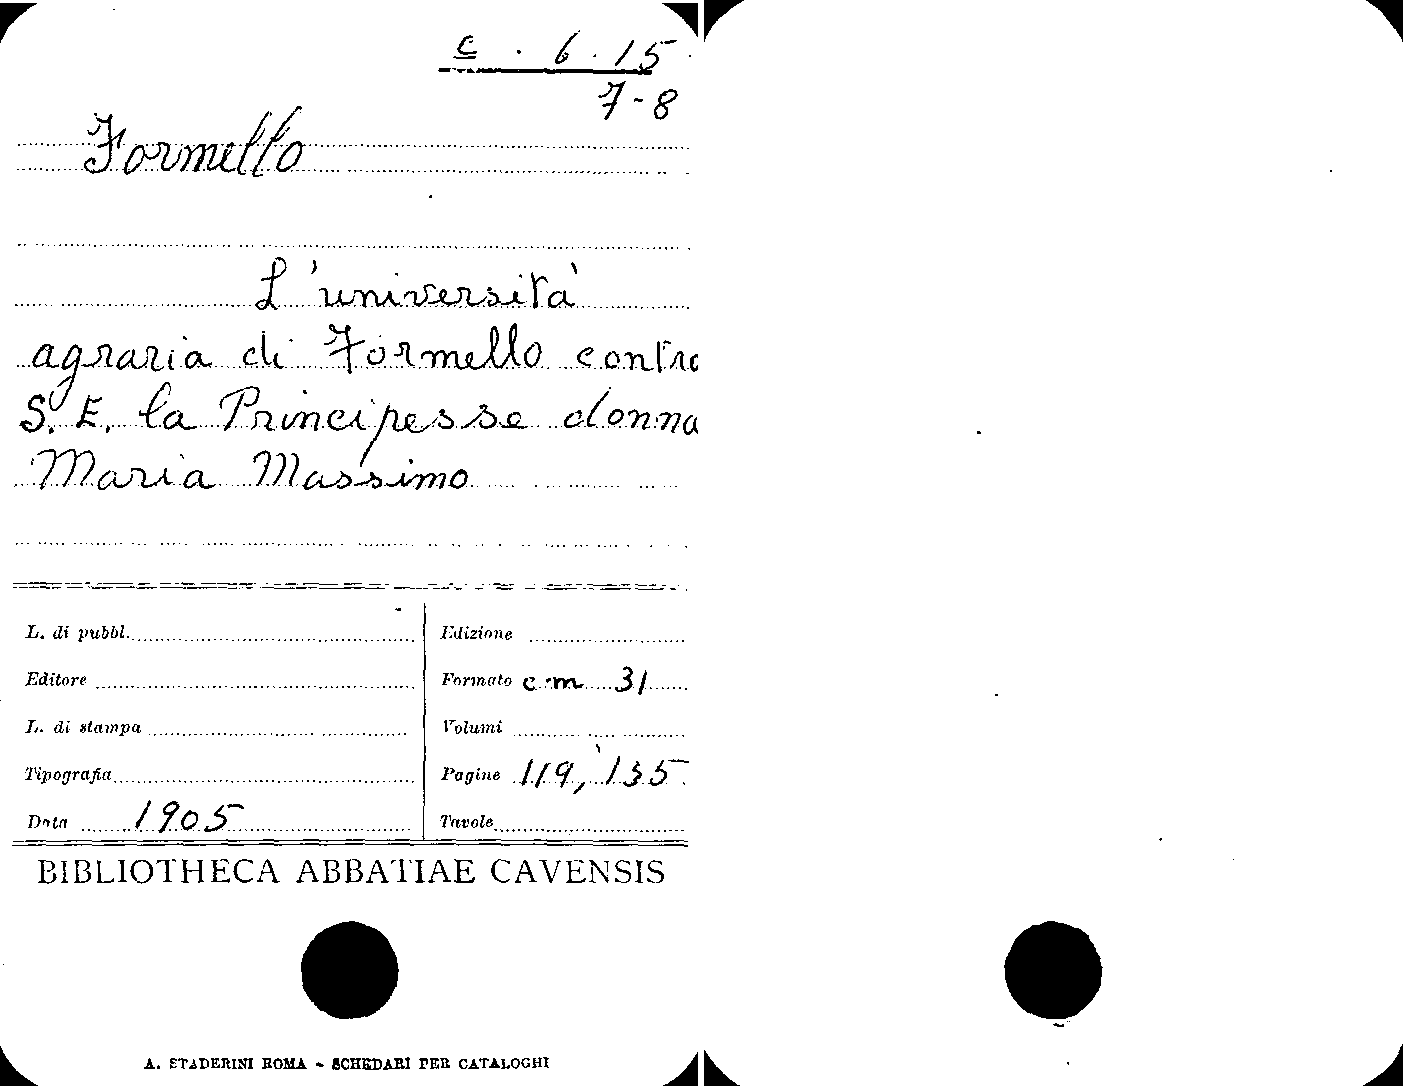 c . 6 . 15
7-8
Formello
L'università
agraria di Formello contro
S. E. la Principessa donna
Maria Massimo
L. di pubbl.
Edizione
Editore
Formato cm 31
L. di stampa
Volumi
Tipografia
Pagine 119, 135
Data 1905
Tavole
BIBLIOTHECA ABBATIAE CAVENSIS
A. STADERINI ROMA - SCHEDARI PER CATALOGHI